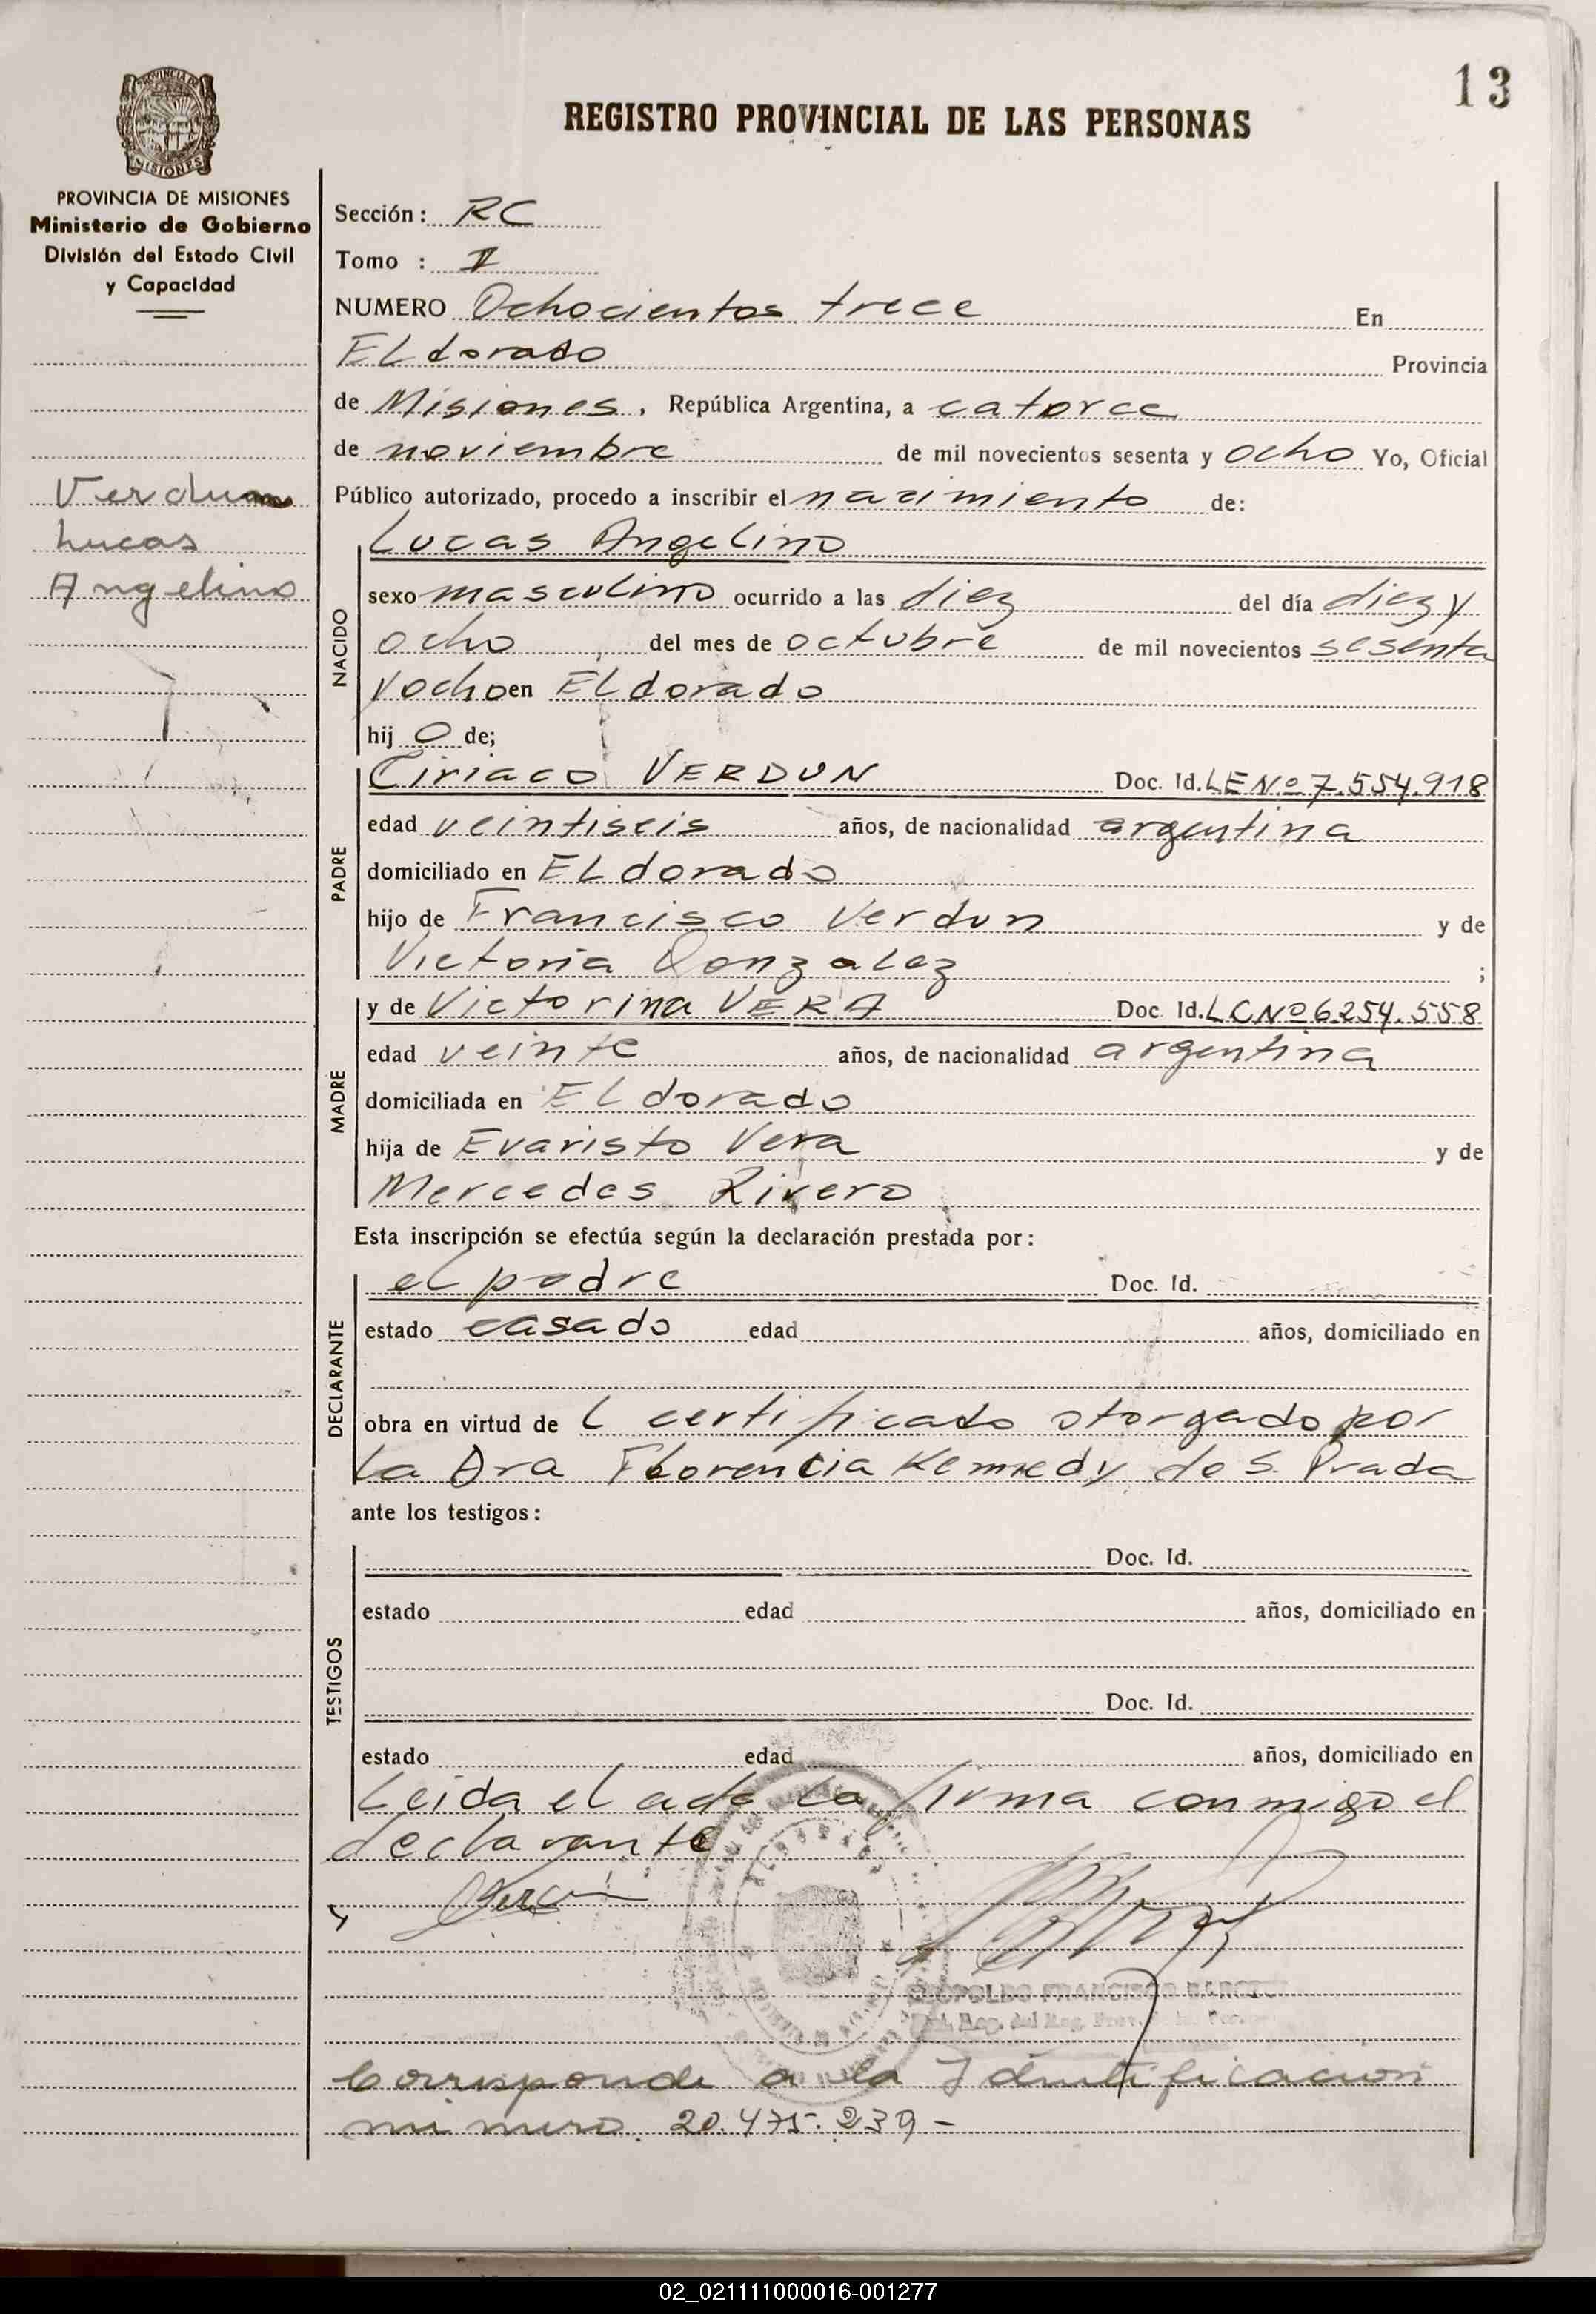 13
REGISTRO PROVINCIAL DE LAS PERSONAS
PROVINCIA DE
MISIONES
PROVINCIA DE MISIONES
Ministerio de Gobierno
División del Estado Civil
y Capacidad
Verdun
Lucas
Angelino
Sección: RC
Tomo :
NUMERO Ochocientos trece En
ELdorado Provincia
de Misiones, República Argentina, a catorce
de noviembre de mil novecientos sesenta y ocho Yo, Oficial
Público autorizado, procedo a inscribir el nacimiento de:
NACIDO
Lucas Angelino
sexo masculino ocurrido a las diez del día diez y
ocho del mes de octubre de mil novecientos sesenta
y ocho en ELdorado
hij o de;
PADRE
Ciriaco VERDUN Doc. Id. LE Nº 7.554.918
edad veintiseis años, de nacionalidad argentina
domiciliado en ELdorado
hijo de Francisco Verdun y de
Victoria Gonzalez ;
MADRE
y de Victorina VERA Doc. Id. LC Nº 6.254.558
edad veinte años, de nacionalidad argentina
domiciliada en ELdorado
hija de Evaristo Vera y de
Mercedes Rivero
Esta inscripción se efectúa según la declaración prestada por:
DECLARANTE
el padre Doc. Id.
estado casado edad años, domiciliado en
obra en virtud de l certificado otorgado por
la Dra Florencia Kennedy de S. Prada
ante los testigos:
TESTIGOS
Doc. Id.
estado edad años, domiciliado en
Doc. Id.
estado edad años, domiciliado en
Leida el acta la firma conmigo el
declarante
LEOPOLDO FRANCISCO
Corresponde a la Identificacion
numero. 20.475.239-
02_021111000016-001277